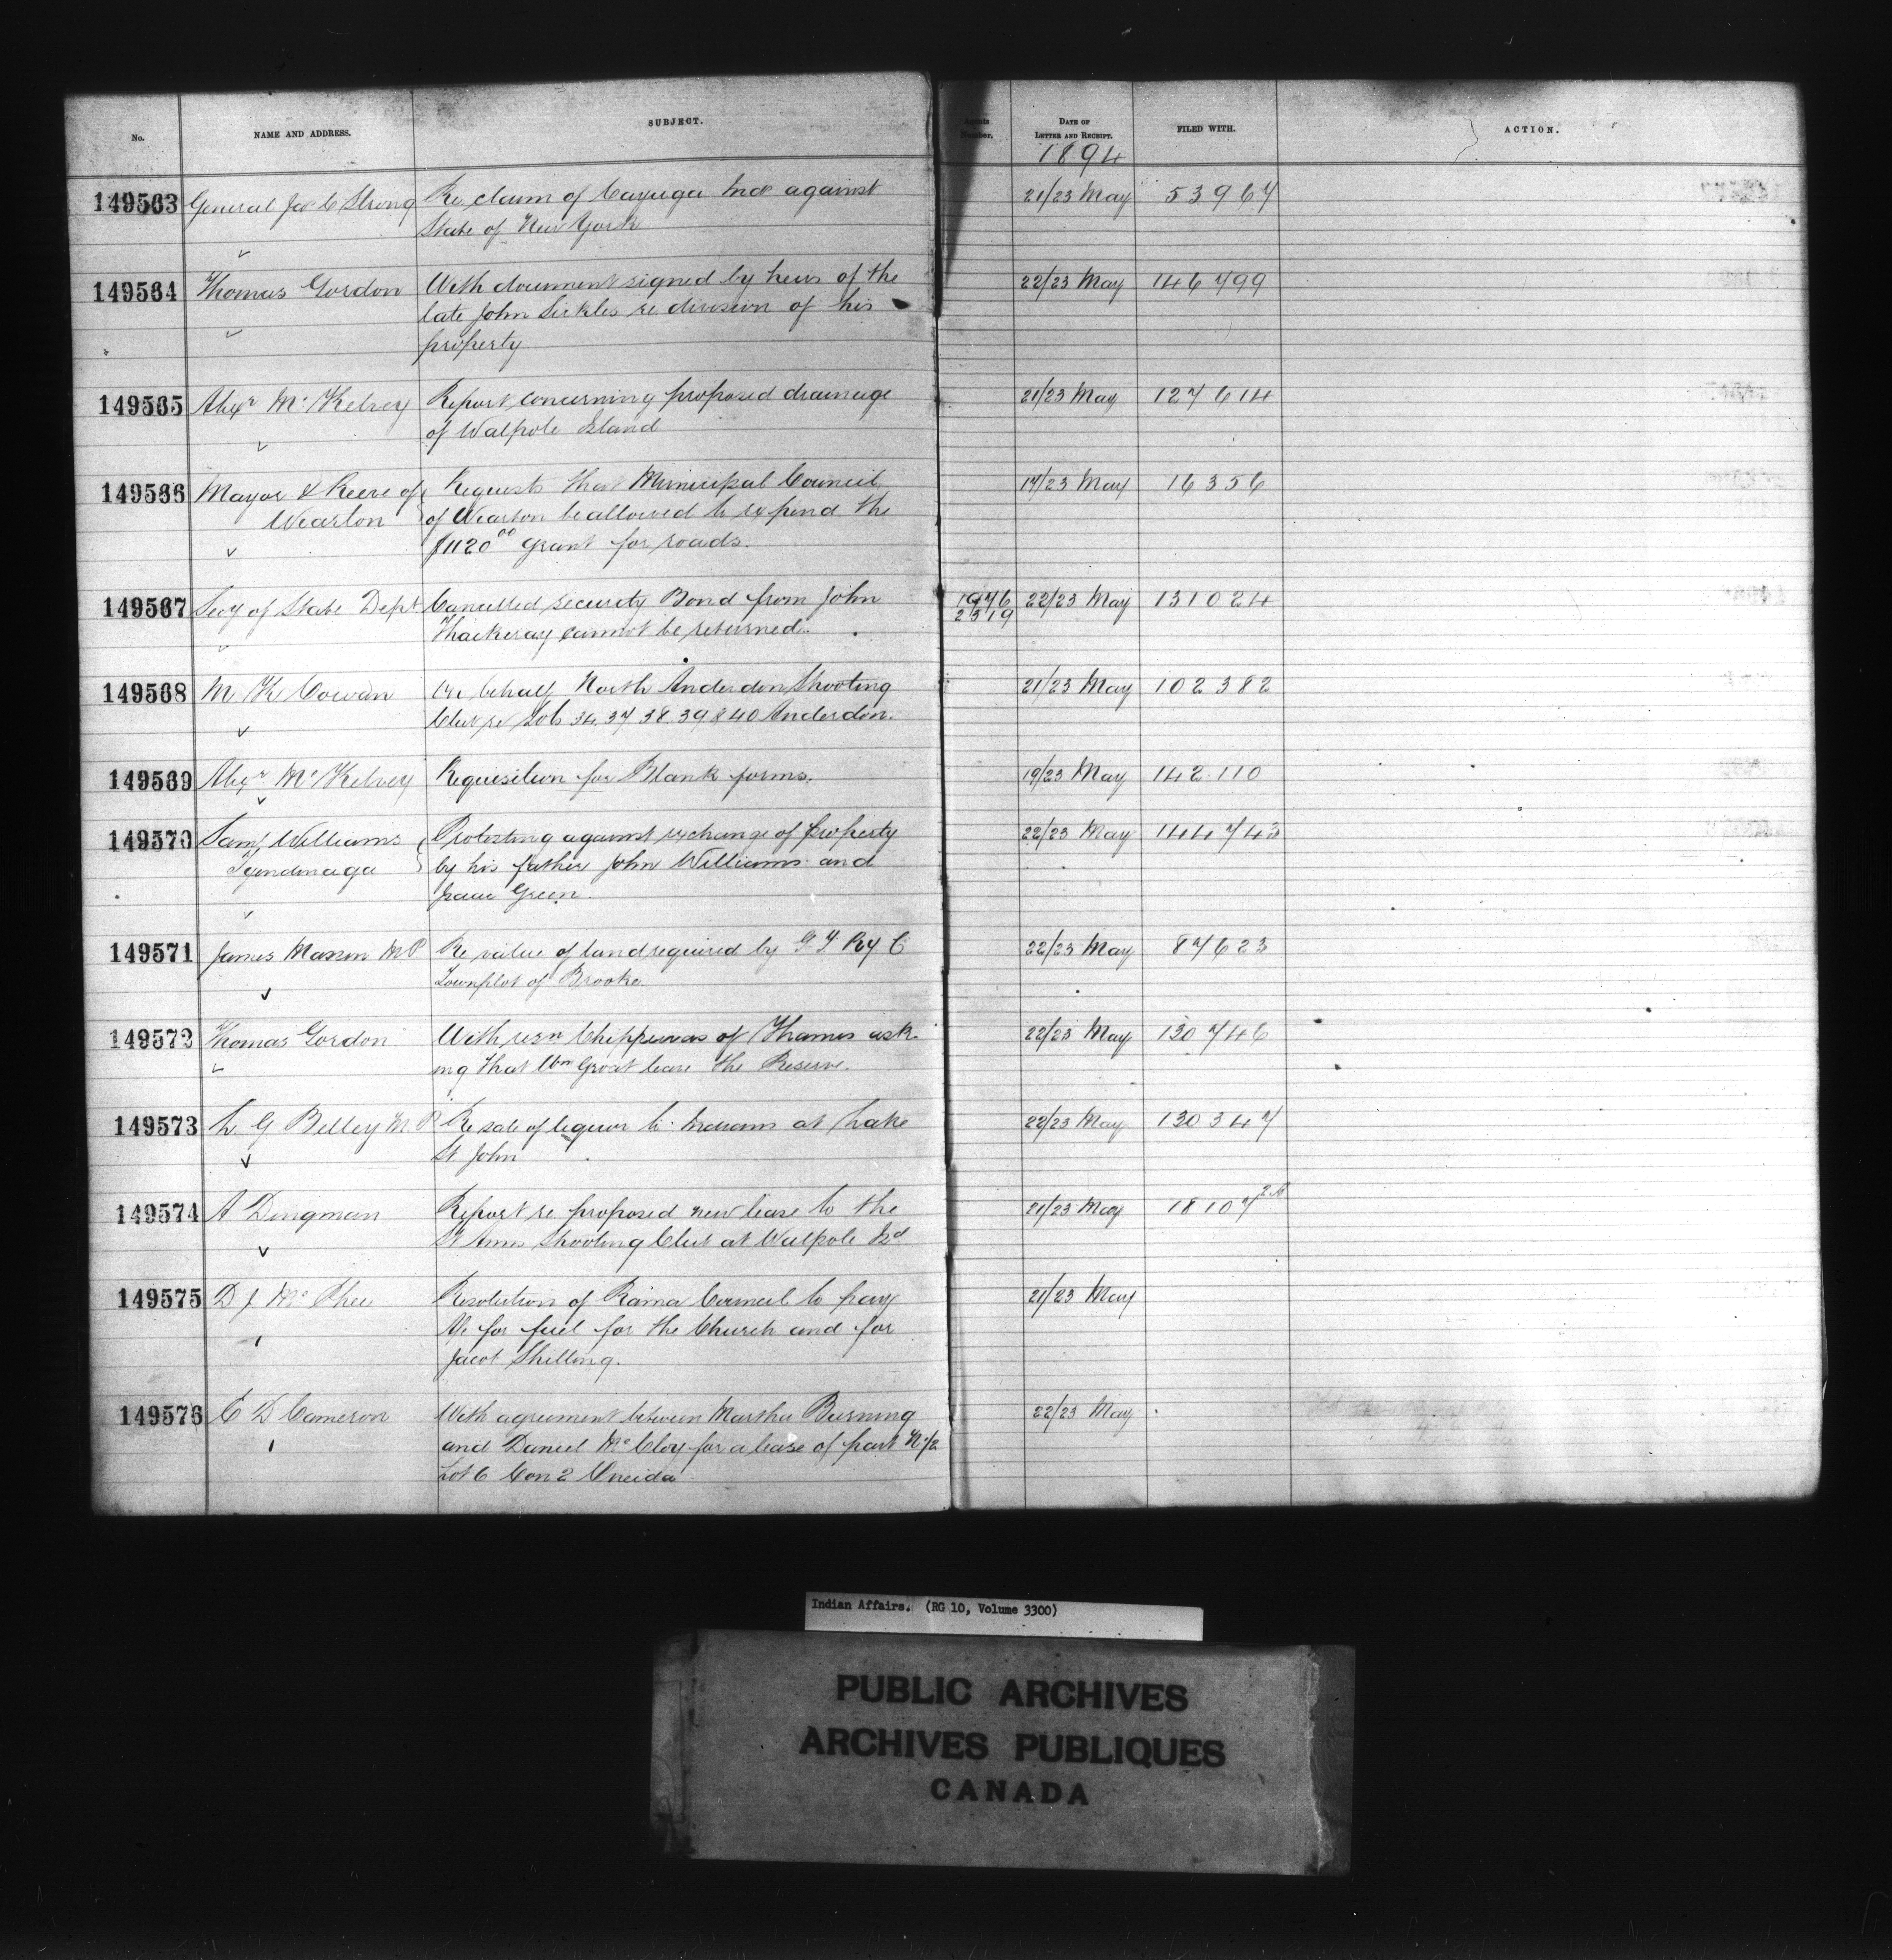 No. NAME AND ADDRESS. SUBJECT. Agents Number. DATE OF LETTER AND RECEIPT. FILED WITH. ACTION.
1894
149563 General Jas C Strong Re claim of Cayuga Inds against 21/23 May 53967
State of New York
149564 Thomas Gordon With document signed by heirs of the 22/23 May 146799
late John Sickles re division of his
property
149565 Alexr McKelvey Report concerning proposed drainage 21/23 May 127614
of Walpole Island
149566 Mayor & Reeve of Requests that Municipal Council 17/23 May 16356
Wiarton of Wiarton be allowed to expend the
$1120.00 grant for roads.
149567 Secy of State Dept Cancelled security Bond from John 1976 22/23 May 131024
Thackeray cannot be returned. 2319
149568 M K Cowan On behalf North Anderdon Shooting 21/23 May 102382
Club re Lots 34. 37 38. 39 & 40 Anderdon.
149569 Alexr McKelvey Requisition for Blank forms. 19/23 May 142110
149570 Saml Williams Protesting against exchange of property 22/23 May 144743
Tyendinaga by his father John Williams and
Isaac Green.
149571 James Masson MP Re value of land required by G T Ry C 22/23 May 87623
Townplot of Brooke
149572 Thomas Gordon With resn Chippewas of Thames ask- 22/23 May 130746
ing that Wm Groat leave the Reserve.
149573 L G Belley M.P Re sale of liquor to Indians at Lake 22/23 May 130347
St John
149574 A Dingman Report re proposed new lease to the 21/23 May 18107
St Anns Shooting Club at Walpole Isd
149575 D J McPhee Resolution of Rama Council to pay 21/23 May
a/c for fuel for the Church and for
Jacob Shilling.
149576 E D Cameron With agreement between Martha Burning 22/23 May
and Daniel McCloy for a lease of part N 1/2
Lot 6 Con 2 Oneida
Indian Affairs. (RG 10, Volume 3300)
PUBLIC ARCHIVES
ARCHIVES PUBLIQUES
CANADA